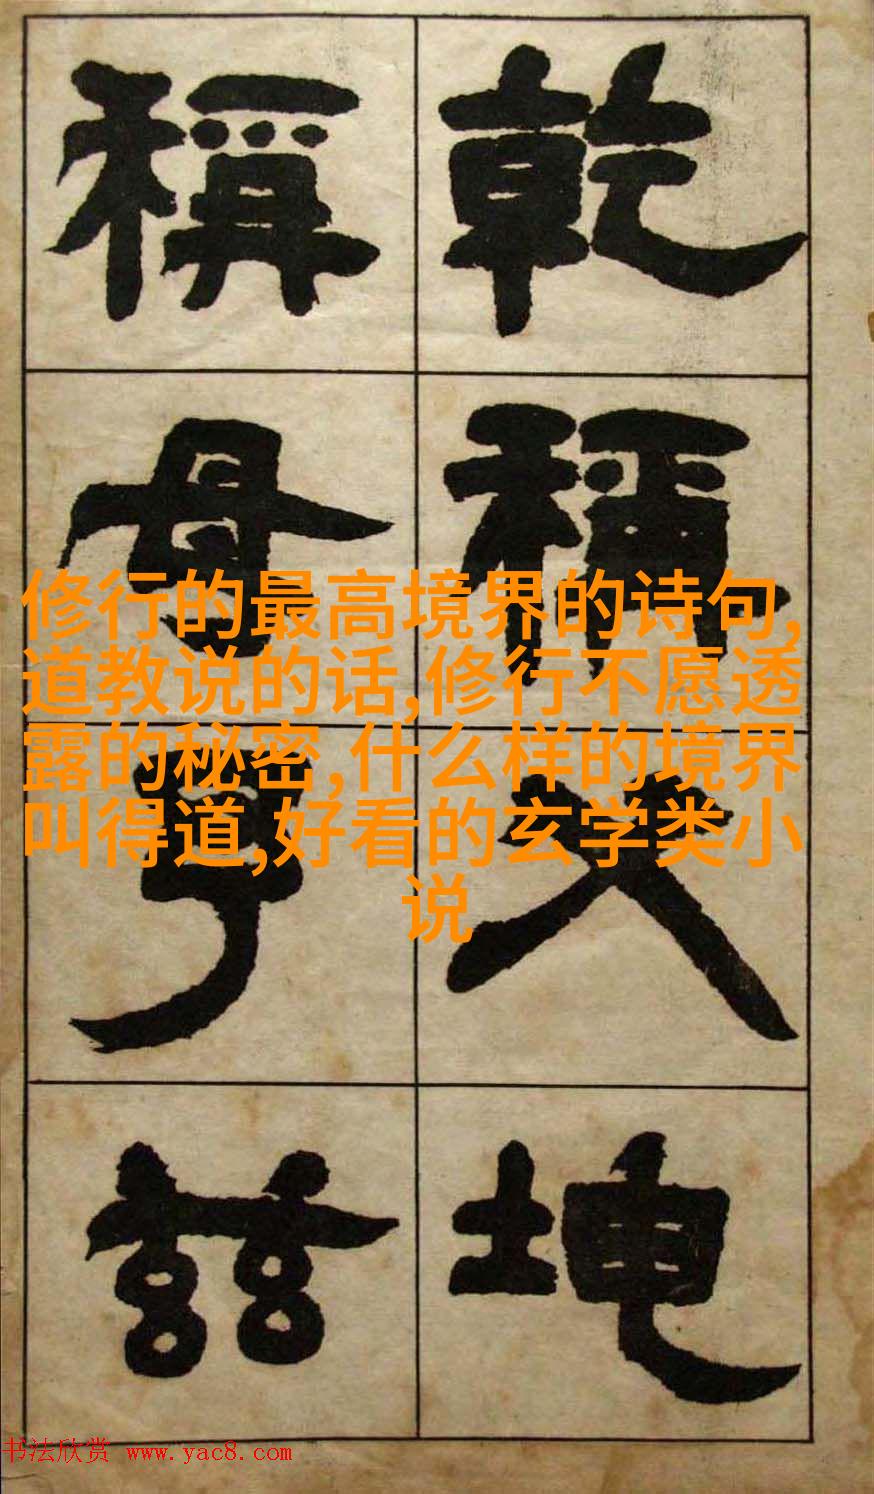 乾稱父坤
稱母予茲
修行的最高境界的诗句,
道教说的话,修行不愿透
露的秘密,什么样的境界
叫得道,好看的玄学类小
说
书法欣赏 www.yac8.com